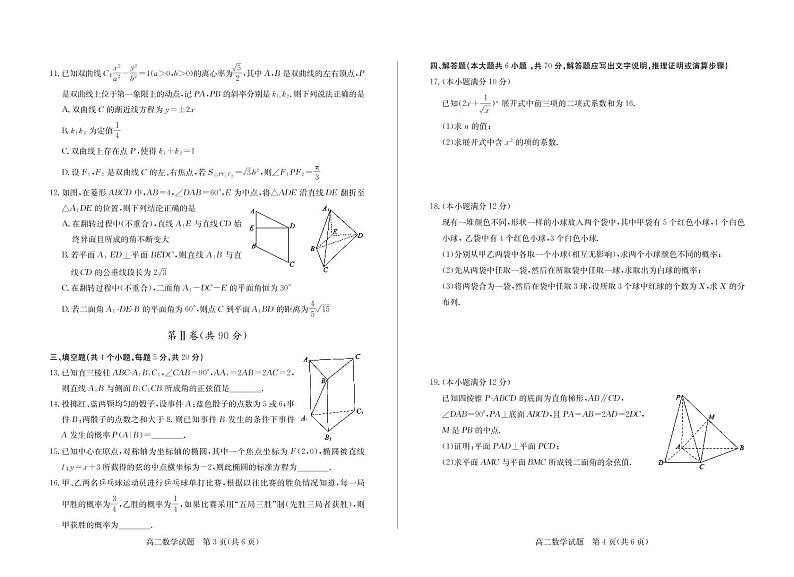 11.已知双曲线C:x²/a²-y²/b²=1(a>0,b>0)的离心率为√5/2,其中A,B是双曲线的左右顶点,P
是双曲线上位于第一象限上的动点,记PA,PB的斜率分别是k₁,k₂.则下列说法正确的是
A.双曲线C的渐近线方程为y=±2x
B.k₁k₂为定值1/4
C.双曲线上存在点P,使得k₁+k₂=1
D.设F₁,F₂是双曲线C的左、右焦点,若S△PF₁F₂=√3b²,则∠F₁PF₂=π/3
12.如图,在菱形ABCD中,AB=4,∠DAB=60°,E为中点,将△ADE沿直线DE翻折至
△A₁DE的位置,则下列结论正确的是
A.在翻转过程中(不重合),直线A₁E与直线CD始
终异面且所成的角不断变大
B.若平面A₁ED⊥平面BEDC,则直线A₁B与直
线CD的公垂线段长为2√3
C.在翻转过程中(不重合),二面角A₁-DC-E的平面角恒为30°
D.若二面角A₁-DE-B的平面角为60°,则点C到平面A₁BD的距离为4/5√15
A
E
D
B
C
A₁
E
D
B
C
第Ⅱ卷(共90分)
三、填空题(共4个小题,每题5分,共20分)
13.已知直三棱柱ABC-A₁B₁C₁,∠CAB=90°,AA₁=2AB=2AC=2,
则直线A₁B与侧面B₁C₁CB所成角的正弦值是________.
14.投掷红、蓝两颗均匀的骰子,设事件A:蓝色骰子的点数为5或6;事
件B:两骰子的点数之和大于8.则已知事件B发生的条件下事件
A发生的概率P(A|B)=________.
A
C
B
A₁
C₁
B₁
15.已知中心在原点,对称轴为坐标轴的椭圆,其中一个焦点坐标为F(2,0),椭圆被直线
l:y=x+3所截得的弦的中点横坐标为-2,则此椭圆的标准方程为________.
16.甲、乙两名乒乓球运动员进行乒乓球单打比赛,根据以往比赛的胜负情况知道,每一局
甲胜的概率为3/4,乙胜的概率为1/4,如果比赛采用“五局三胜”制(先胜三局者获胜),则
甲获胜的概率为________.
高二数学试题 第3页(共6页)
四、解答题(本大题共6小题,共70分,解答题应写出文字说明,推理证明或演算步骤)
17.(本小题满分10分)
已知(2x+1/√x)ⁿ展开式中前三项的二项式系数和为16.
(1)求n的值;
(2)求展开式中含x²的项的系数.
18.(本小题满分12分)
现有一堆颜色不同,形状一样的小球放入两个袋中,其中甲袋有5个红色小球,4个白色
小球,乙袋中有4个红色小球,3个白色小球.
(1)分别从甲乙两袋中各取一个小球(相互无影响),求两个小球颜色不同的概率;
(2)先从两袋中任取一袋,然后在所取袋中任取一球,求取出为白球的概率;
(3)将两袋合为一袋,然后在袋中任取3球,设所取3个球中红球的个数为X,求X的分
布列.
19.(本小题满分12分)
已知四棱锥P-ABCD的底面为直角梯形,AB∥CD,
∠DAB=90°,PA⊥底面ABCD,且PA=AB=2AD=2DC,
M是PB的中点.
(1)证明:平面PAD⊥平面PCD;
(2)求平面AMC与平面BMC所成锐二面角的余弦值.
P
M
A
B
D
C
高二数学试题 第4页(共6页)